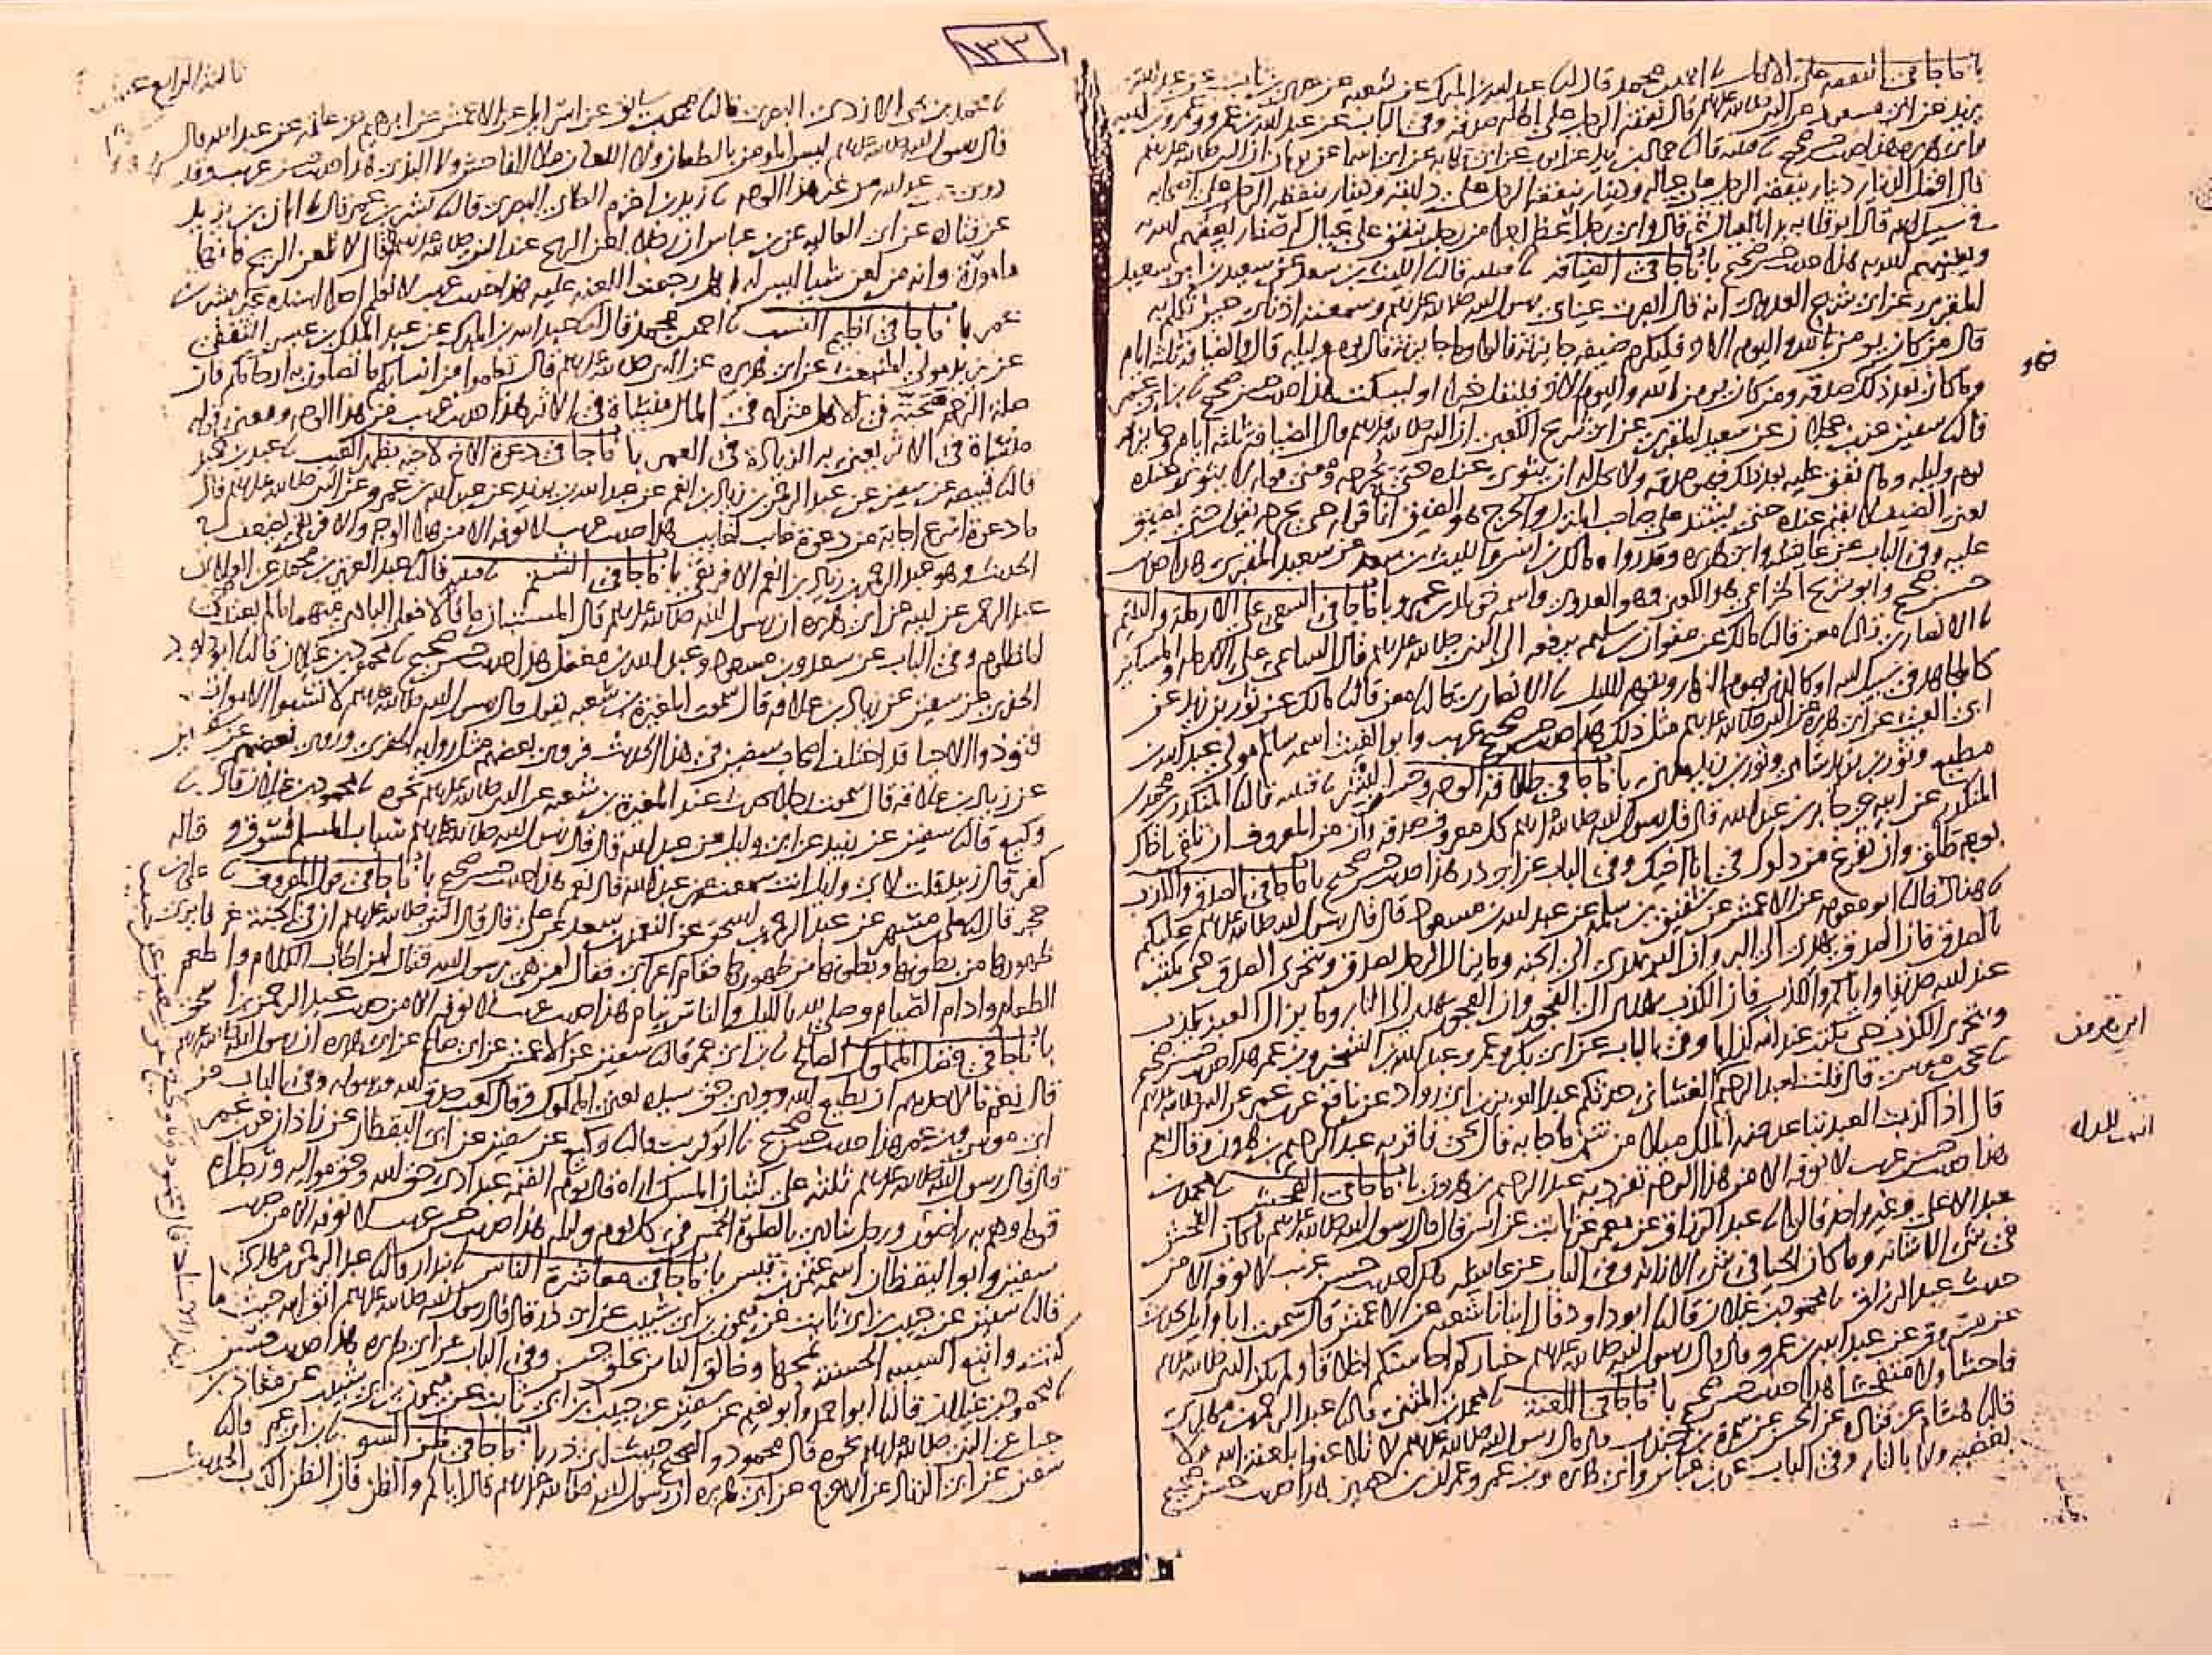 باب ما جا في النفقه على الاهل نا احمد بن محمد قال نا عبد الله بن المبرك عن شعبه عن عدي بن ثابت عن عبد الله بن
يزيد عن ابي مسعود عن النبي صلى الله عليه وسلم قال نفقه الرجل على اهله صدقه وفي الباب عن عبد الله بن عمرو وعمرو بن اميه
وابي هريره هذا حديث حسن صحيح نا قتيبه قال نا حماد بن زيد عن ايوب عن ابي قلابه عن ابي اسما عن ثوبان ان النبي صلى الله عليه وسلم
قال افضل الدينار دينار ينفقه الرجل على عياله ودينار ينفقه الرجل على دابته ودينار ينفقه الرجل على اصحابه
في سبيل الله قال ابو قلابه بدا بالعيال ثم قال واي رجل اعظم اجرا من رجل ينفق على عيال له صغار يعفهم الله به
ويغنيهم الله به هذا حديث حسن صحيح باب ما جا في الضيافه نا قتيبه قال نا الليث بن سعد عن سعيد بن ابي سعيد
المقبري عن ابي شريح العدوي انه قال ابصرت عيناي رسول الله صلى الله عليه وسلم وسمعته اذناي حين تكلم به
قال من كان يومن بالله واليوم الاخر فليكرم ضيفه جايزته قالوا وما جايزته قال يوم وليله قال والضيافه ثلثه ايام
وما كان بعد ذلك صدقه ومن كان يومن بالله واليوم الاخر فليقل خيرا او ليسكت هذا حديث حسن صحيح نا بن ابي عمر
قال نا سفين عن بن عجلان عن سعيد المقبري عن ابي شريح الكعبي ان النبي صلى الله عليه وسلم قال الضيافه ثلثه ايام وجايزته
يوم وليله وما انفق عليه بعد ذلك فهو صدقه ولا يحل له ان يثوي عنده حتى يحرجه ومعنى قوله لا يثوي عنده
يعني الضيف لا يقيم عنده حتى يشتد على صاحب المنزل والحرج هو الضيق انما قوله حتى يحرجه يقول حتى يضيق
عليه وفي الباب عن عايشه وابي هريره وقد رواه مالك بن انس والليث بن سعد عن سعيد المقبري هذا حديث
حسن صحيح وابو شريح الخزاعي هو الكعبي وهو العدوي واسمه خويلد بن عمرو باب ما جا في السعي على الارمله واليتيم
نا الانصاري قال نا معن قال نا مالك عن صفوان بن سليم يرفعه الى النبي صلى الله عليه وسلم قال الساعي على الارمله والمسكين
كالمجاهد في سبيل الله او كالذي يصوم النهار ويقوم الليل نا الانصاري قال نا معن قال نا مالك عن ثور بن زيد عن
ابي الغيث عن ابي هريره عن النبي صلى الله عليه وسلم مثل ذلك هذا حديث حسن صحيح غريب وابو الغيث اسمه سالم مولى عبد الله بن
مطيع وثور بن يزيد شامي وثور بن زيد مدني باب ما جا في طلاقه الوجه وحسن البشر نا قتيبه قال نا المنكدر بن محمد بن
المنكدر عن ابيه عن جابر بن عبد الله قال قال رسول الله صلى الله عليه وسلم كل معروف صدقه وان من المعروف ان تلقى اخاك
بوجه طلق وان تفرغ من دلوك في انا اخيك وفي الباب عن ابي ذر هذا حديث حسن صحيح باب ما جا في الصدق والكذب
نا هناد قال نا ابو معويه عن الاعمش عن شقيق بن سلمه عن عبد الله بن مسعود قال قال رسول الله صلى الله عليه وسلم عليكم
بالصدق فان الصدق يهدي الى البر وان البر يهدي الى الجنه وما يزال الرجل يصدق ويتحرى الصدق حتى يكتب
عند الله صديقا واياكم والكذب فان الكذب يهدي الى الفجور وان الفجور يهدي الى النار وما يزال العبد يكذب
ويتحرى الكذب حتى يكتب عند الله كذابا وفي الباب عن ابي بكر وعمر وعبد الله بن الشخير وبن عمر هذا حديث حسن صحيح
نا يحيى بن موسى قال قلت لعبد الرحيم الغساني حدثكم عبد العزيز بن ابي رواد عن نافع عن بن عمر عن النبي صلى الله عليه وسلم
قال اذا كذب العبد تباعد عنه الملك ميلا من نتن ما جا به قال يحيى فاقر به عبد الرحيم بن هرون وقال نعم
هذا حديث حسن غريب لا نعرفه الا من هذا الوجه تفرد به عبد الرحيم بن هرون باب ما جا في الفحش نا محمد بن
عبد الاعلى وغير واحد قالوا نا عبد الرزاق عن معمر عن ثابت عن انس قال قال رسول الله صلى الله عليه وسلم ما كان الفحش
في شي الا شانه وما كان الحيا في شي الا زانه وفي الباب عن عايشه هذا حديث حسن غريب لا نعرفه الا من
حديث عبد الرزاق نا محمود بن غيلان قال نا ابو داود قال انبانا شعبه عن الاعمش قال سمعت ابا وايل يحدث
عن مسروق عن عبد الله بن عمرو قال قال رسول الله صلى الله عليه وسلم خياركم احاسنكم اخلاقا ولم يكن النبي صلى الله عليه وسلم
فاحشا ولا متفحشا هذا حديث حسن صحيح باب ما جا في اللعنه نا محمد بن المثنى قال نا عبد الرحمن بن مهدي
قال نا هشام عن قتاده عن الحسن عن سمره بن جندب قال قال رسول الله صلى الله عليه وسلم لا تلاعنوا بلعنه الله ولا
بغضبه ولا بالنار وفي الباب عن بن عباس وابي هريره وبن عمر وعمران بن حصين هذا حديث حسن صحيح
١٣٣
نا محمد بن يحيى الازدي البصري قال نا محمد بن سابق عن اسرايل عن الاعمش عن ابرهيم عن علقمه عن عبد الله قال
قال رسول الله صلى الله عليه وسلم ليس المومن بالطعان ولا اللعان ولا الفاحش ولا البذي هذا حديث حسن غريب وقد
روي عن عبد الله من غير هذا الوجه نا زيد بن اخزم الطاي البصري قال نا بشر بن عمر قال نا ابان بن يزيد
عن قتاده عن ابي العاليه عن بن عباس ان رجلا لعن الريح عند النبي صلى الله عليه وسلم فقال لا تلعن الريح فانها
مامورة وانه من لعن شيا ليس له باهل رجعت اللعنه عليه هذا حديث غريب لا نعلم احدا اسنده غير بشر بن
عمر باب ما جا في تعليم النسب نا احمد بن محمد قال نا عبد الله بن المبرك عن عبد الملك بن عيسى الثقفي
عن يزيد مولى المنبعث عن ابي هريره عن النبي صلى الله عليه وسلم قال تعلموا من انسابكم ما تصلون به ارحامكم فان
صله الرحم محبه في الاهل مثراه في المال منساة في الاثر هذا حديث غريب من هذا الوجه ومعنى قوله
منساة في الاثر يعني به الزيادة في العمر باب ما جا في دعوة الاخ لاخيه بظهر الغيب نا عبد بن حميد
قال نا قبيصه عن سفين عن عبد الرحمن بن زياد بن انعم عن عبد الله بن يزيد عن عبد الله بن عمرو عن النبي صلى الله عليه وسلم قال
ما دعوة اسرع اجابة من دعوة غايب لغايب هذا حديث غريب لا نعرفه الا من هذا الوجه والافريقي يضعف في
الحديث وهو عبد الرحمن بن زياد بن انعم الافريقي باب ما جا في الشتم نا قتيبه قال نا عبد العزيز بن محمد عن العلا بن
عبد الرحمن عن ابيه عن ابي هريره ان رسول الله صلى الله عليه وسلم قال المستبان ما قالا فعلى البادي منهما ما لم يعتد
المظلوم وفي الباب عن سعد وبن مسعود وعبد الله بن مغفل هذا حديث حسن صحيح نا محمود بن غيلان قال نا ابو داود
الحفري عن سفين عن زياد بن علاقه قال سمعت المغيرة بن شعبه يقول قال رسول الله صلى الله عليه وسلم لا تسبوا الاموات
فتوذوا الاحيا قد اختلف اصحاب سفين في هذا الحديث فروى بعضهم مثل روايه الحفري وروى بعضهم عن سفين
عن زياد بن علاقه قال سمعت رجلا يحدث عند المغيرة بن شعبه عن النبي صلى الله عليه وسلم نحوه نا محمود بن غيلان قال نا
وكيع قال نا سفين عن زبيد عن ابي وايل عن عبد الله قال قال رسول الله صلى الله عليه وسلم سباب المسلم فسوق وقتاله
كفر قال زبيد قلت لابي وايل انت سمعته من عبد الله قال نعم هذا حديث حسن صحيح باب ما جا في قول المعروف نا علي بن
حجر قال نا علي بن مسهر عن عبد الرحمن بن اسحق عن النعمن بن سعد عن علي قال قال النبي صلى الله عليه وسلم ان في الجنه غرفا يرى
ظهورها من بطونها وبطونها من ظهورها فقام اعرابي فقال لمن هي يرسول الله فقال لمن اطاب الكلام واطعم
الطعام وادام الصيام وصلى لله بالليل والناس نيام هذا حديث غريب لا نعرفه الا من حديث عبد الرحمن بن اسحق
باب ما جا في فضل المملوك الصالح نا بن ابي عمر قال نا سفين عن الاعمش عن ابي صالح عن ابي هريره ان رسول الله صلى الله عليه وسلم
قال نعم ما لاحدهم ان يطيع الله ويودي حق سيده يعني المملوك وقال كعب صدق الله ورسوله وفي الباب عن
ابي موسى وبن عمر هذا حديث حسن صحيح نا ابو كريب قال نا وكيع عن سفين عن ابي اليقظان عن زاذان عن بن عمر
قال قال رسول الله صلى الله عليه وسلم ثلثه على كثبان المسك اراه قال يوم القيمه عبد ادى حق الله وحق مواليه ورجل ام
قوما وهم به راضون ورجل ينادي بالصلوة الخمس في كل يوم وليله هذا حديث حسن غريب لا نعرفه الا من حديث
سفين وابو اليقظان اسمه عثمن بن قيس باب ما جا في معاشرة الناس نا بندار قال نا عبد الرحمن بن مهدي
قال نا سفين عن حبيب بن ابي ثابت عن ميمون بن ابي شبيب عن ابي ذر قال قال رسول الله صلى الله عليه وسلم اتق الله حيث ما
كنت واتبع السييه الحسنه تمحها وخالق الناس بخلق حسن وفي الباب عن ابي هريره هذا حديث حسن
نا محمود بن غيلان قال نا ابو احمد وابو نعيم عن سفين عن حبيب بن ابي ثابت عن ميمون بن ابي شبيب عن معاذ بن
جبل عن النبي صلى الله عليه وسلم نحوه قال محمود والصحيح حديث ابي ذر باب ما جا في ظن السو نا بن ابي عمر قال نا
سفين عن ابي الزناد عن الاعرج عن ابي هريره ان رسول الله صلى الله عليه وسلم قال اياكم والظن فان الظن اكذب الحديث